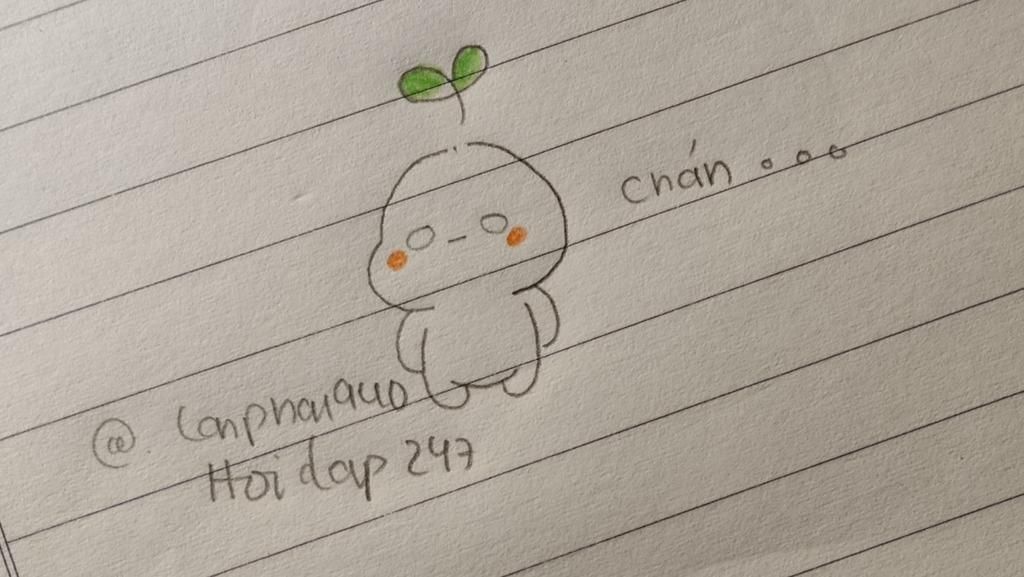 chán...
@. lanphai940
Hoi dap 247